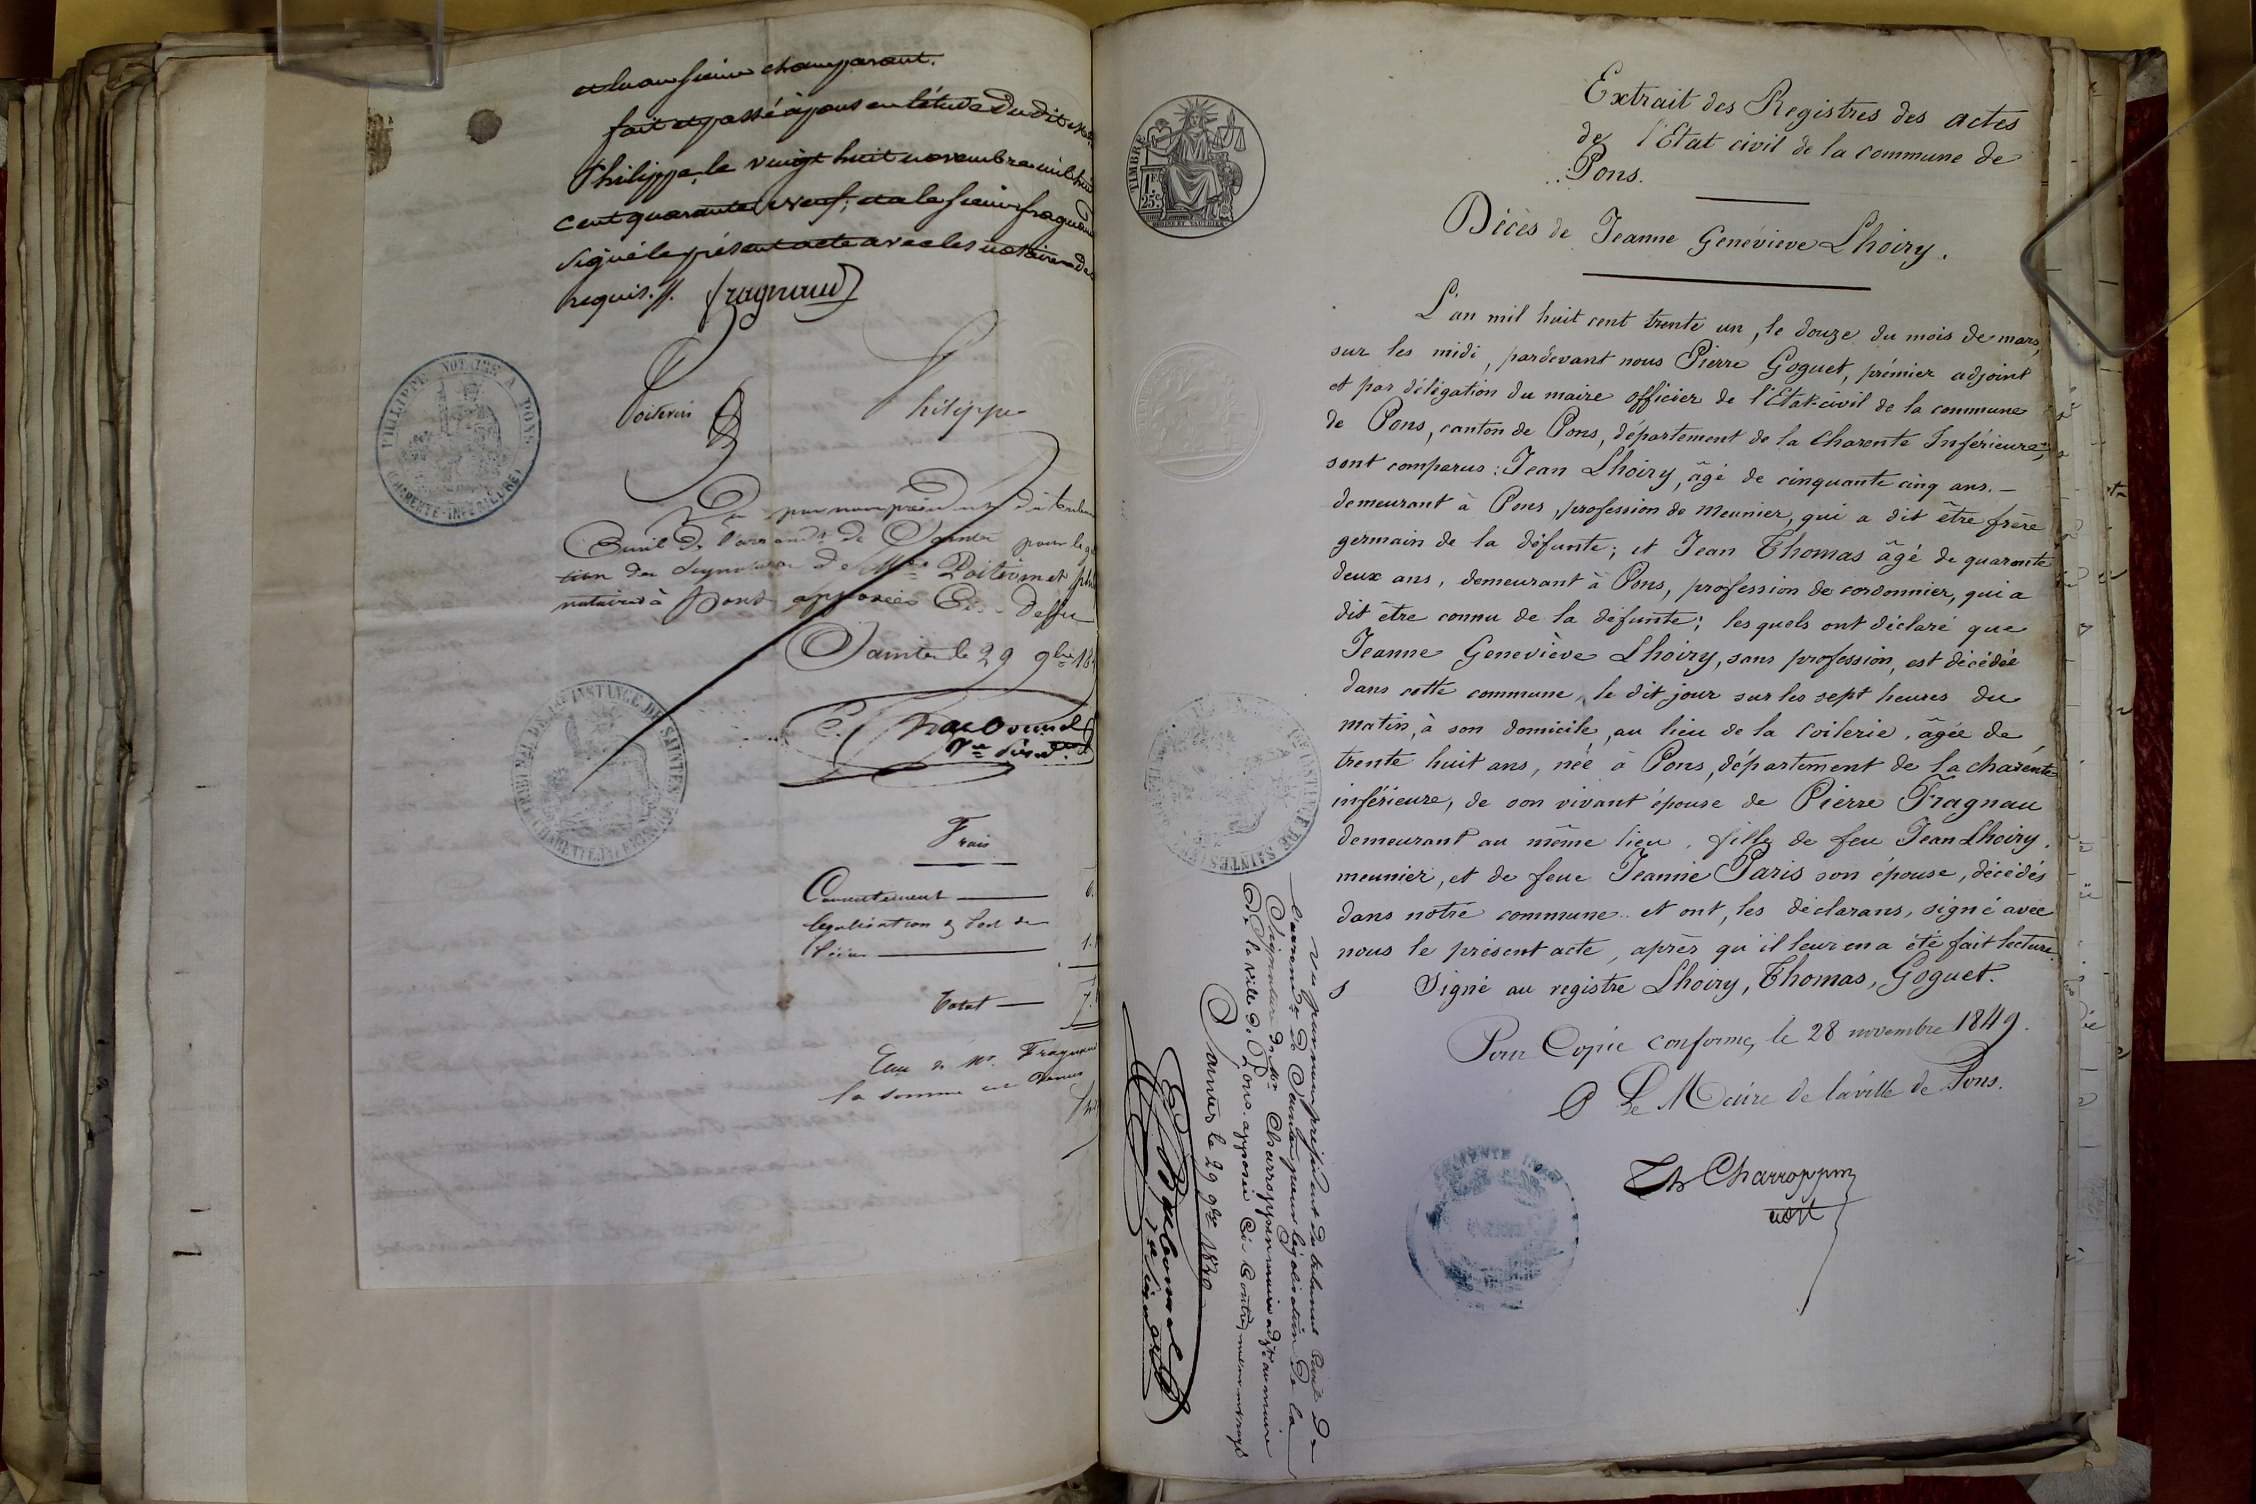 et lu au sieur comparant.
fait et passé à pons en l'étude du dit Me
Philippe, le vingt huit novembre mil huit
cent quarante neuf; et a le sieur fragnaud
signé le présent acte avec les notaires de
requis. //. fragnaud
Poitevin Philippe
PHILIPPE NOTAIRE A PONS
(CHARENTE-INFÉRIEURE)
Vu par nous président du tribun
Civil de l'arrondt de Saintes pour léga
tion des signatures de Mes Poitevin et phi
notaires à Pons apposées Ci-Dessu
Saintes le 29 9bre 184
TRIBUNAL DE 1re INSTANCE DE SAINTES
Frais
Consentement
légalisation & port de
pièces
Total
Reçu de Mr. Fragnaud
la somme ci dessus
TIMBRE
1F.
25C.
Extrait des Registres des actes
de l'Etat civil de la commune de
Pons.
Décès de Jeanne Geneviève Lhoiry.
L'an mil huit cent trente un, le douze du mois de mars,
sur les midi, pardevant nous Pierre Goguet, prémier adjoint
et par délégation du maire officier de l'Etat-civil de la commune
de Pons, canton de Pons, département de la Charente Inférieure,
sont comparus : Jean Lhoiry, âgé de cinquante cinq ans. —
demeurant à Pons, profession de meunier, qui a dit être frère
germain de la défunte; et Jean Thomas âgé de quarante
deux ans, demeurant à Pons, profession de cordonnier, qui a
dit être connu de la défunte; lesquels ont déclaré que
Jeanne Geneviève Lhoiry, sans profession, est décédée
dans cette commune, le dit jour sur les sept heures du
matin, à son domicile, au lieu de la Coilerie, âgée de
trente huit ans, née à Pons, département de la charente
inférieure, de son vivant épouse de Pierre Fragnau
demeurant au même lieu, fille de feu Jean Lhoiry,
meunier, et de feue Jeanne Paris son épouse, décédés
dans notre commune. et ont, les déclarans, signé avec
nous le présent acte, après qu'il leur en a été fait lecture.
Signé au registre Lhoiry, Thomas, Goguet.
Pour Copie conforme, le 28 novembre 1849.
P Le Maire de la ville de Pons.
Th Charroppin
adjt
Vu par nous président du tribunal Civil de
l'arrondt de Saintes pour légalisation de la
Signature de Mr Charroppin maire adjt au maire
De la ville de Pons. apposée Ci-Contre
Saintes le 29 9bre 1849